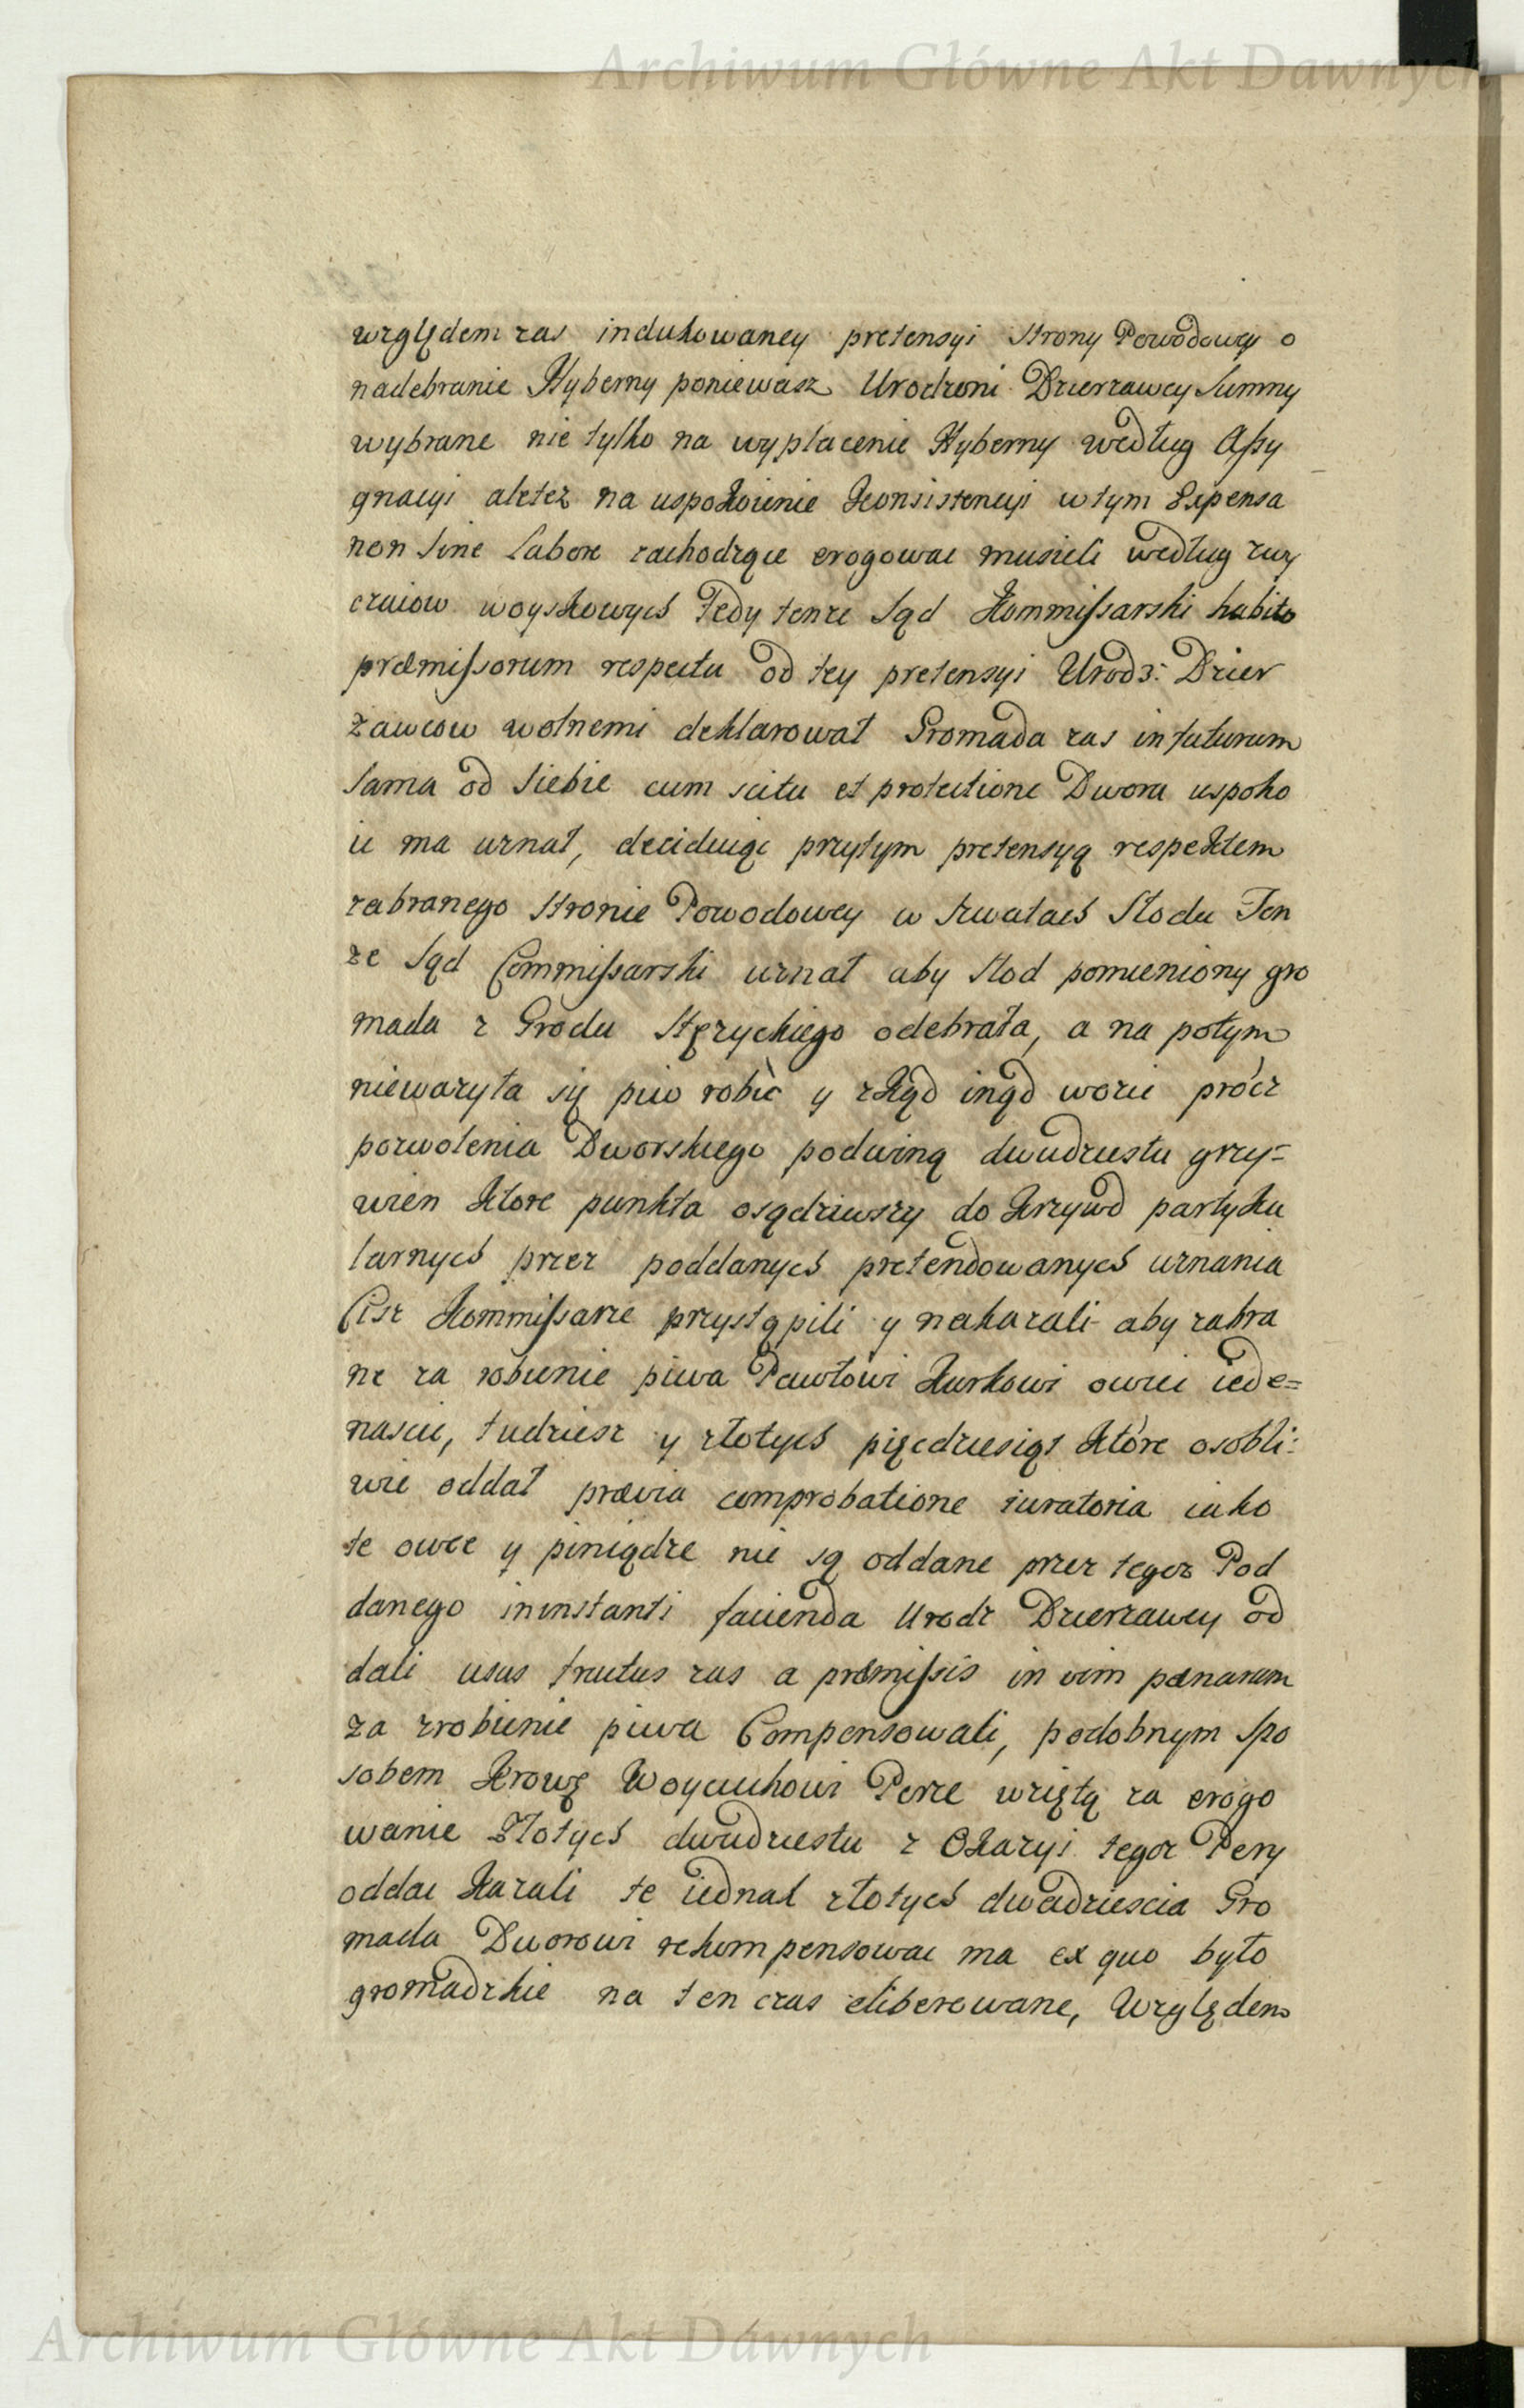 Archiwum Główne Akt Dawnych
względem zas indukowaney pretensyi Strony Powodowey o
nadebranie Hyberny poniewasz Urodzoni Dzierzawcy Summy
wybrane nie tylko na wypłacenie Hyberny według Assy
gnacyi aletez na uspokoienie Konsistencyi w tym Expensa
non sine labore zachodzące erogowac musieli według zwy
czaiow woyskowych Tedy tenze Sąd Kommissarski habito
præmissorum respectu od tey pretensyi Urodz: Dzier
żawcow wolnemi deklarował Gromada zas in futurum
sama od siebie cum scitu et protectione Dworu uspoko
ic ma uznał, deciduiąc przytym pretensyą respektem
zabranego Stronie Powodowey w kwatach Słodu Ten
ze Sąd Commissarski uznał aby Słod pomieniony gro
mada z Grodu Stęzyckiego odebrała, a na potym
niewazyła się piw robić y zkąd inąd wozic prócz
pozwolenia Dworskiego podwiną dwudziestu grzy=
wien ktore punkta osądziwszy do krzywd partyku
larnych przez poddanych pretendowanych uznania
Cisz Kommissarze przystąpili y nakazali aby zabra
ne za robienie piwa Pawłowi Kurkowi owiec iede=
nascie, tudziesz y złotych pięcdziesiąt które osobli:
wie oddał prævia comprobatione iuratoria iako
te owce y piniądze nie są oddane przez tegoz Pod
danego in instanti facienda Urodz Dzierzawcy od
dali usus fructus zas a præmissis in vim pænarum
za zrobienie piwa Compensowali, podobnym spo
sobem Krowę Woyciechowi Perze wziętą za erogo
wanie Złotych dwudziestu z Okazyi tegoz Pery
oddac kazali te iednak złotych dwadziescia Gro
mada Dworowi rekompensowac ma ex quo było
gromadzkie na ten czas eliberowane, Względem
Archiwum Główne Akt Dawnych